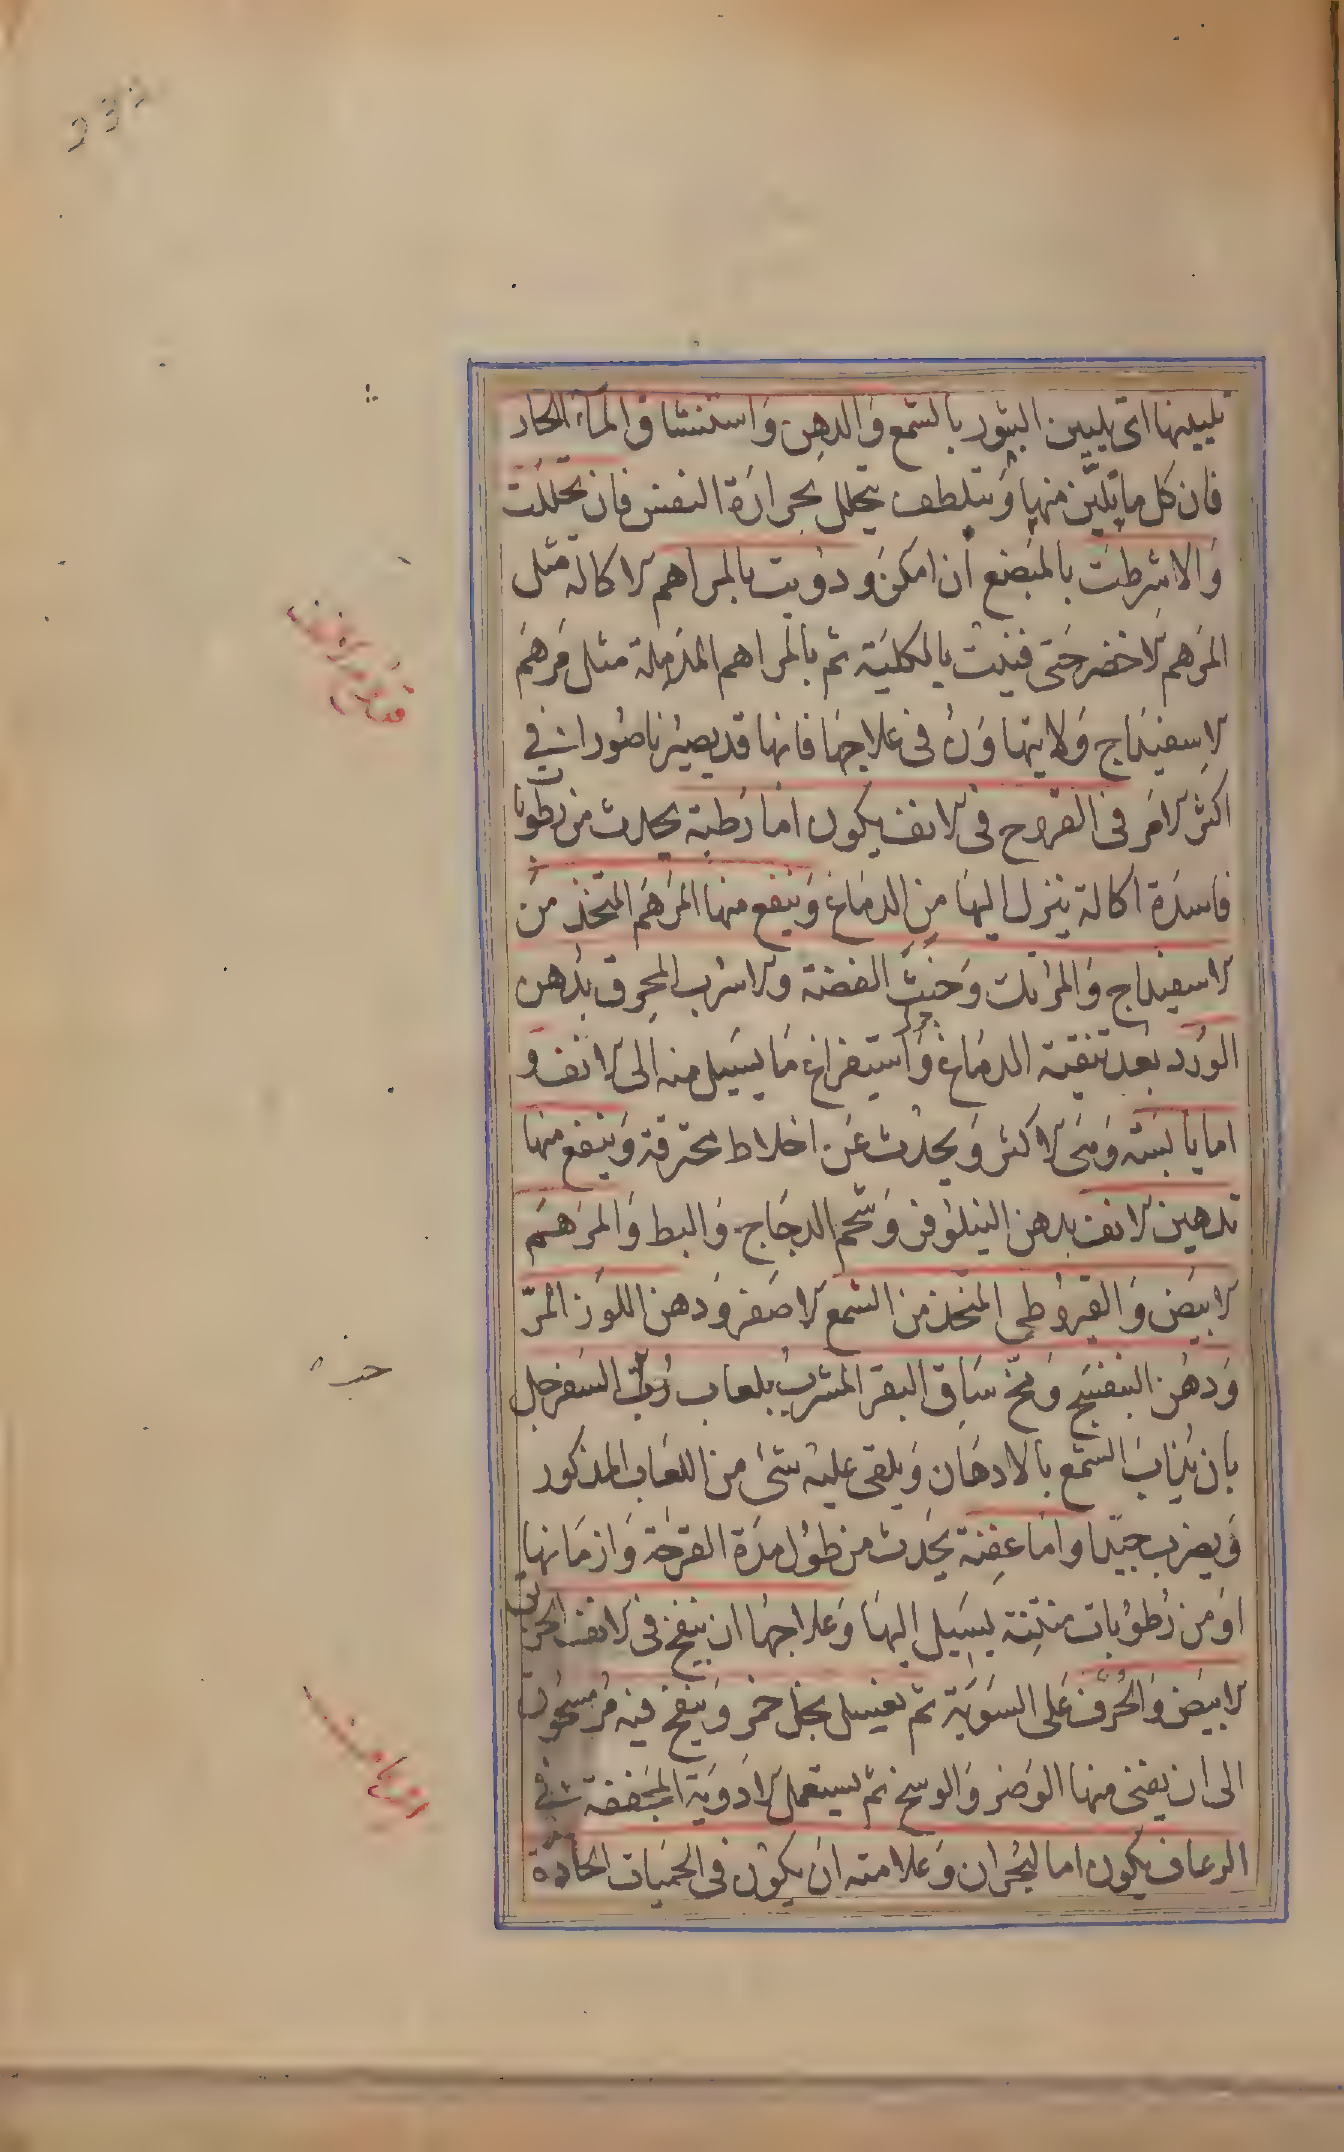 تليينها اى تليين البثور بالشمع والدهن واستنشاق المآء الحار
فان كل ما تليّن منها وتلطف يتحلل بحرارة النفس فان تحللت
والا شرطت بالمبضع ان امكن ودويت بالمراهم الاكالة مثل
المرهم الاخضر حتى فنيت بالكلية ثم بالمراهم المدملة مثل مرهم
الاسفيداج ولا يتهاون فى علاجها فانها قد يصير ناصورا فى
اكثر الامر فى القروح فى الانف يكون اما رطبة يحدث من رطوبات
فاسدة اكالة ينزل اليها من الدماغ وينفع منها المرهم المتخذ من
الاسفيداج والمرتك وخبث الفضة والاسرب المحرق بدهن
الورد بعد تنقية الدماغ واستفراغ ما يسيل منه الى الانف و
اما يابسة وهى الاكثر ويحدث عن اخلاط محترقة وينفع منها
تدهين الانف بدهن النيلوفر وشحم الدجاج والبط والمرهم
الابيض والقيروطى المتخذ من الشمع الاصفر ودهن اللوز المرّ
ودهن البنفسج ومخ ساق البقر المشرب بلعاب السفرجل
بان يذاب الشمع بالادهان ويلقى عليه شئ من اللعاب المذكور
ويضرب جيّدا واما عفنة يحدث من طول مدة القرحة وازمانها
او من رطوبات منتنة يسيل اليها وعلاجها ان ينفخ فى الانف الخربق
الابيض والحُرف على السوية ثم يغسل بخل خمر وينفخ فيه مر مسحوق
الى ان يفنى منها الوضر والوسخ ثم يستعمل الادوية المجففة فى
الرعاف يكون اما لبحران وعلامته ان يكون فى الحميات الحادة
قروح الانف
الرعاف